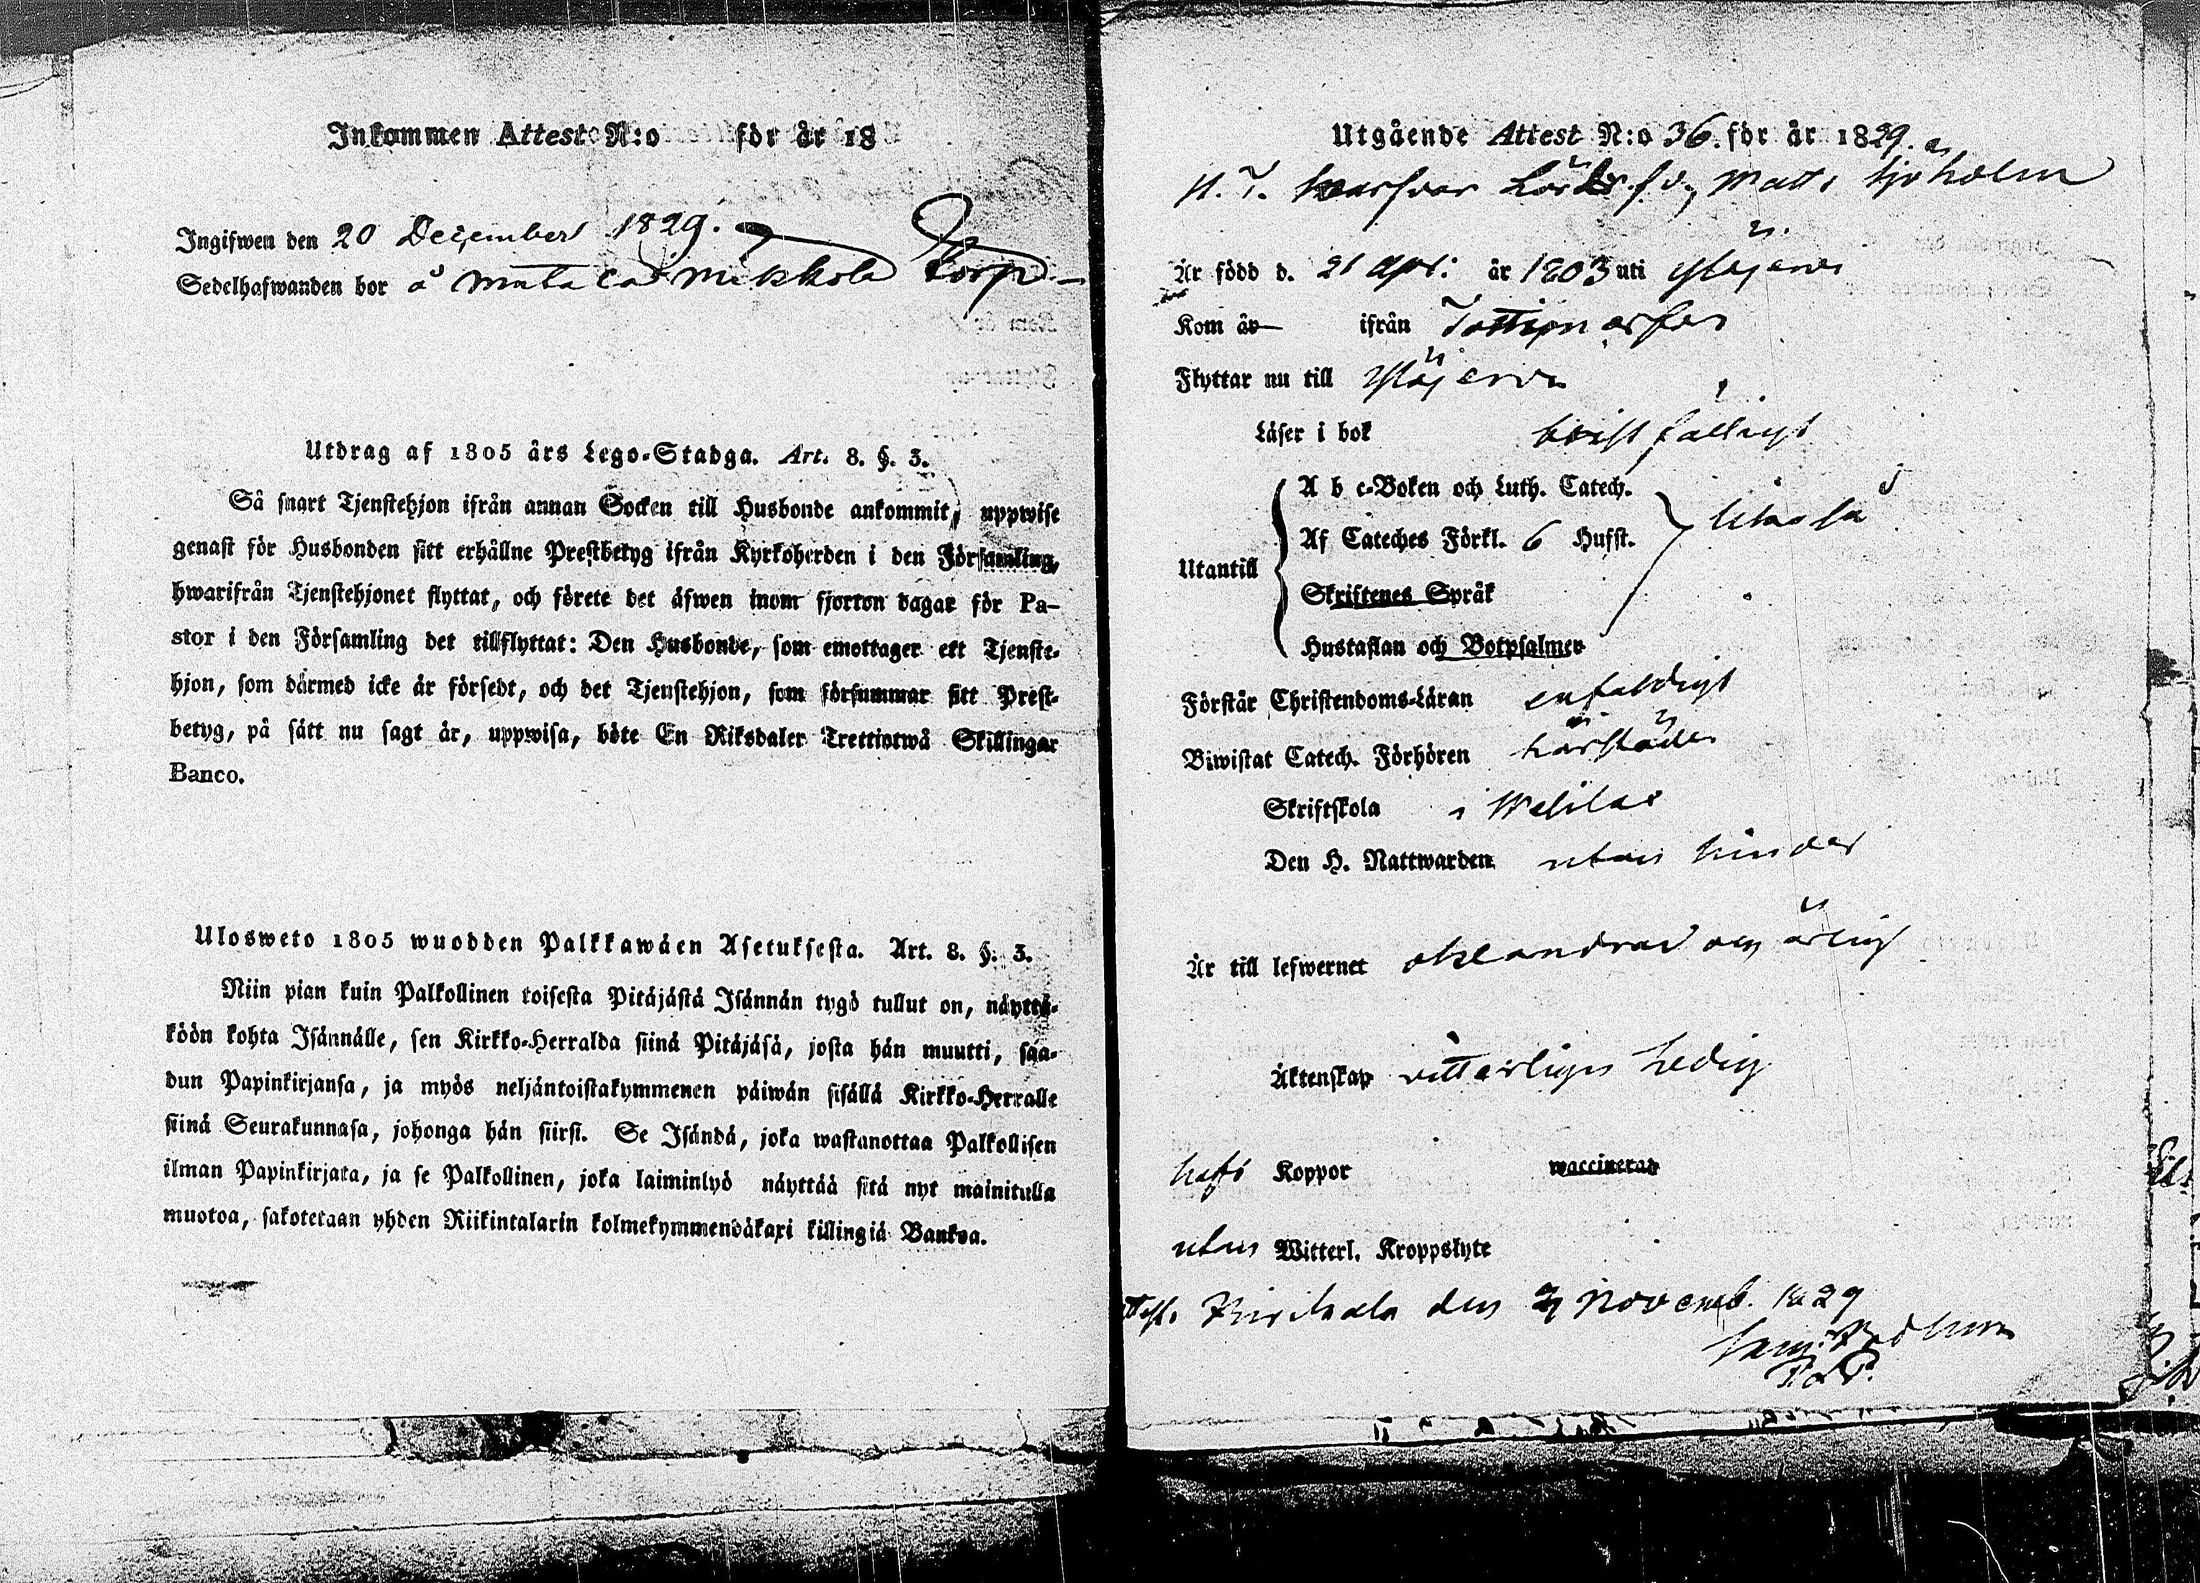 Inkommen Attest N:o för år 18
Ingifwen den 20 December 1829.
Sedelhafwanden bor å Mikkola Torp
Utdrag af 1805 års Lego-Stadga. Art. 8. §. 3.
Så snart Tjenstehjon ifrån annan Socken till Husbonde ankommit, uppwise
genast för Husbonden sitt erhållne Prestbetyg ifrån Kyrkoherden i den Församling,
hwarifrån Tjenstehjonet flyttat, och förete det äfwen inom fjorton dagar för Pa-
stor i den Församling det tillflyttat: Den Husbonde, som emottager ett Tjenste-
hjon, som därmed icke är försedt, och det Tjenstehjon, som försummar sitt Prest-
betyg, på sätt nu sagt är, uppwisa, böte En Riksdaler Trettiotwå Skillingar
Banco.
Ulosweto 1805 wuodden Palkkawäen Asetuksesta. Art. 8. §. 3.
Niin pian kuin Palkollinen toisesta Pitäjästä Isännän tygö tullut on, näyttä-
köön kohta Isännälle, sen Kirkko-Herralda siinä Pitäjäsä, josta hän muutti, saa-
dun Papinkirjansa, ja myös neljäntoistakymmenen päiwän sisällä Kirkko-Herralle
siinä Seurakunnasa, johonga hän siirsi. Se Isändä, joka wastanottaa Palkollisen
ilman Papinkirjata, ja se Palkollinen, joka laiminlyö näyttää sitä nyt mainitulla
muotoa, sakotetaan yhden Riikintalarin kolmekymmendäkaxi killingiä Bankoa.
Utgående Attest N:o 36. för år 1829.
Matts Sjöholm
Är född d. 21 Apr: år 1803 uti Ylöjervi
Kom år ifrån Tottijärfvi
Flyttar nu till Ylöjervi
Läser i bok bristfälligt
A b c-Boken och Luth. Catech.
Af Cateches Förkl. 6 Hufst. likaså
Utantill
Skriftenes Språk
Hustaflan och Botpsalmer
Förstår Christendoms-Läran enfaldigt
Biwistat Catech. Förhören härstädes
Skriftskola i Wesilax
Den H. Nattwarden utan hinder
Är till lefwernet oklandrad och ärlig
Äktenskap witterligen Ledig
haft Koppor waccinerad
utan Witterl. Kroppslyte
Test. Birkkala den Novemb. 1829